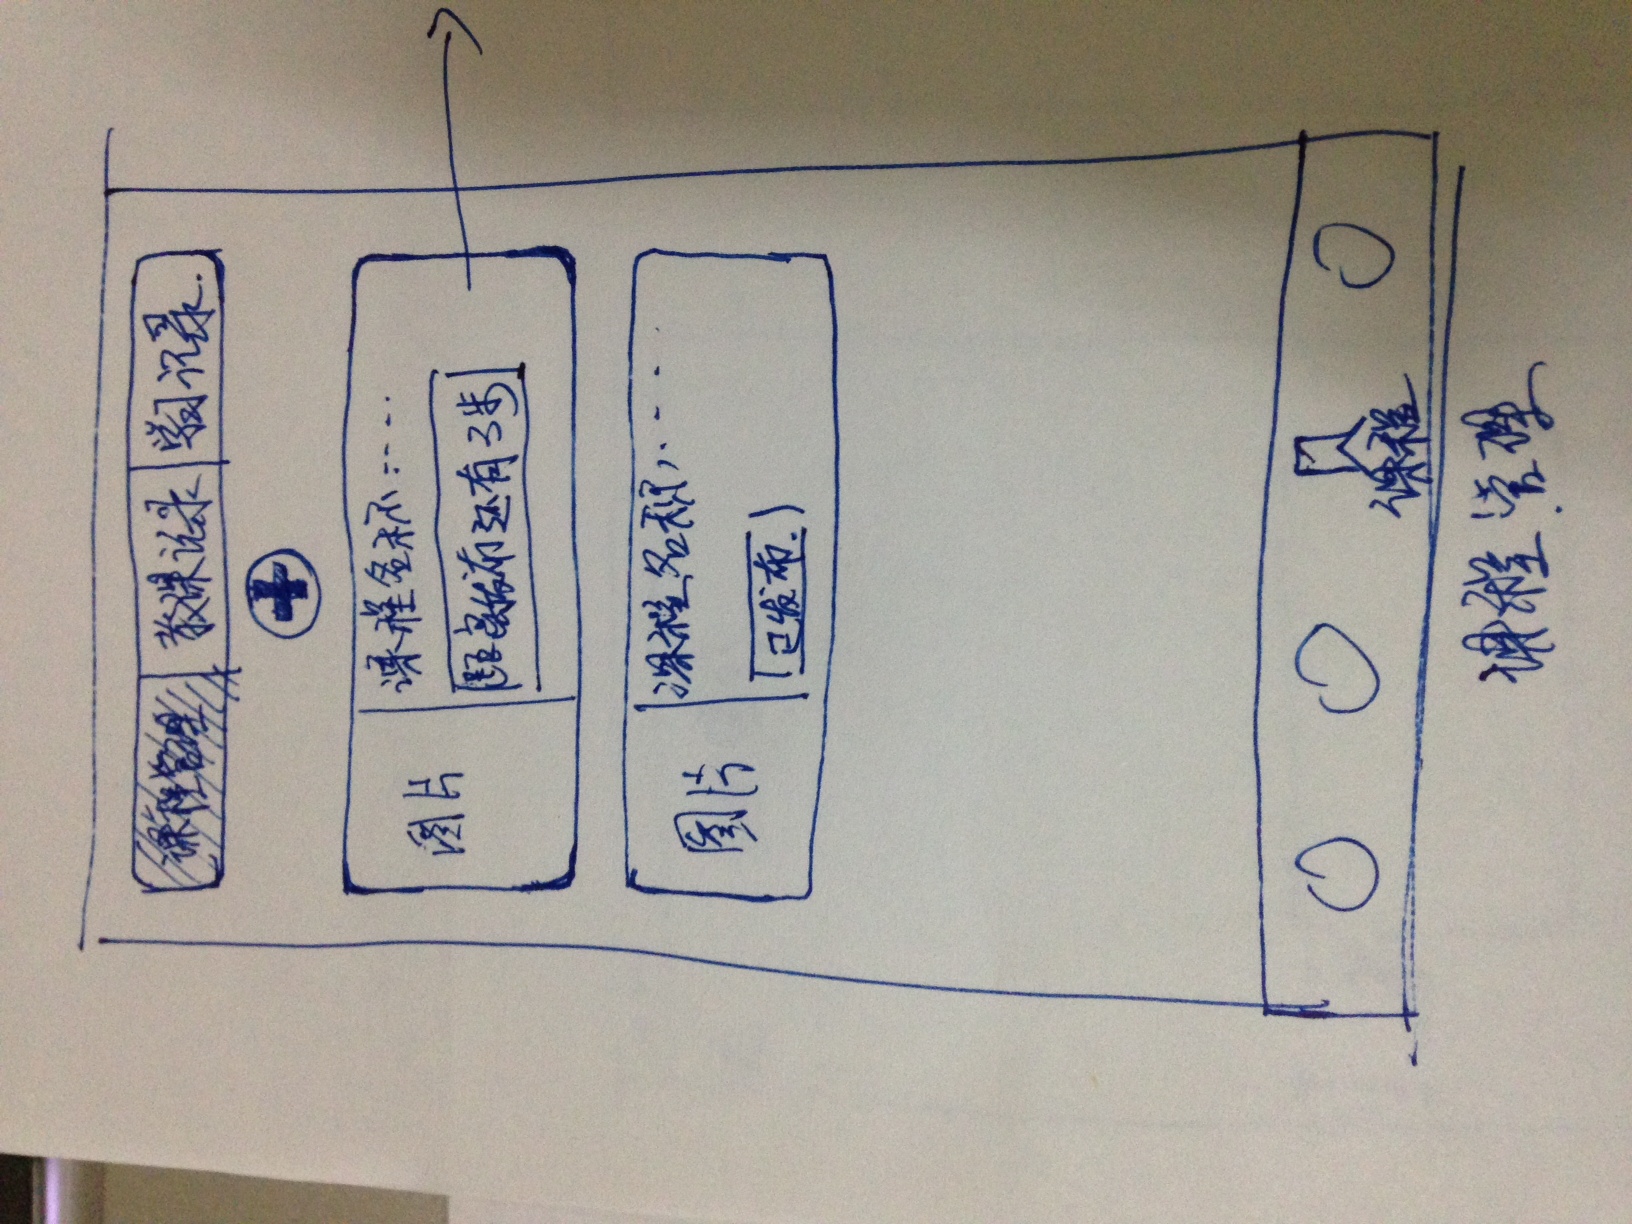 课程管理 教课记录 学习记录.
图片 课程名称:----
距离发布还有3步
图片 课程名称,----
已发布.
课程
课程管理